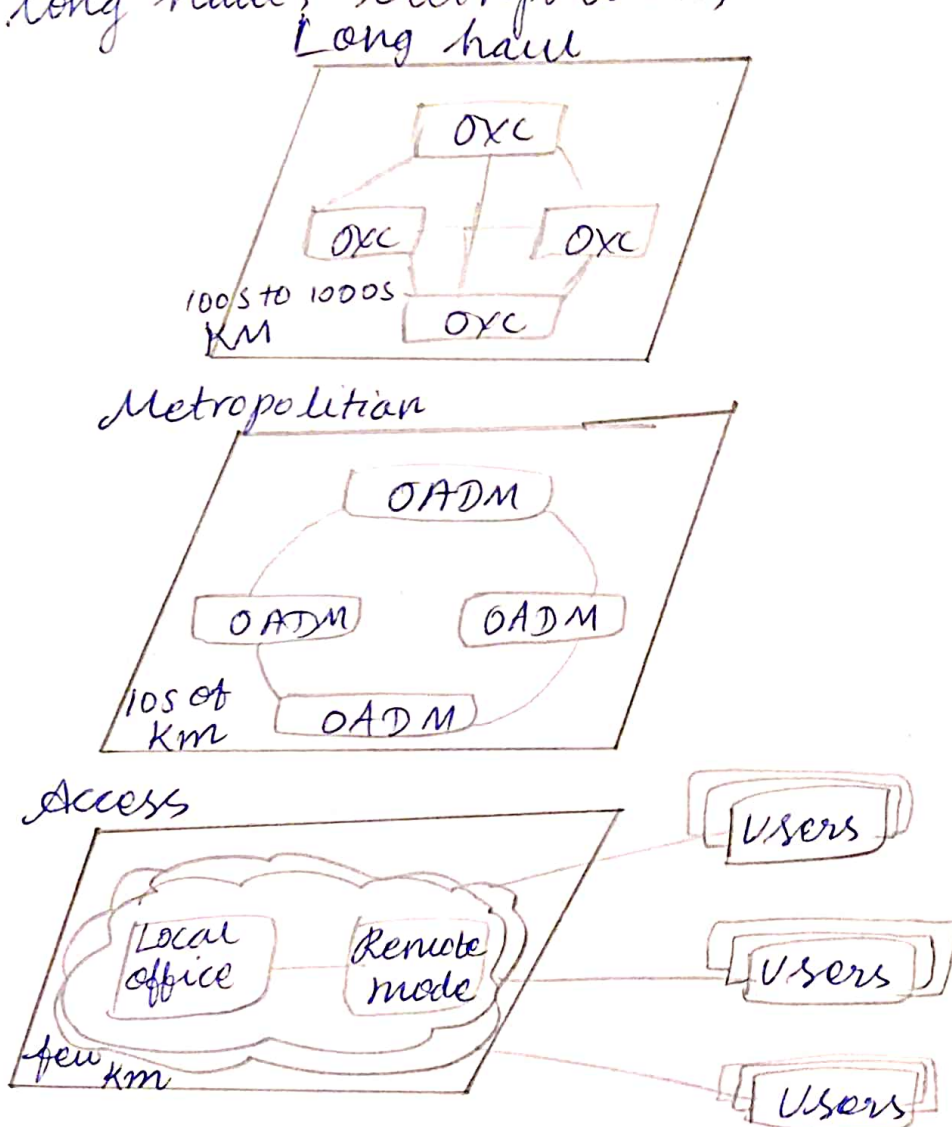 long haul,
Long haul
OXC
OXC
OXC
100S to 1000S
KM
OXC
Metropolitian
OADM
OADM
OADM
10S of
Km
OADM
Access
Users
Local
office
Remote
mode
Users
few
km
Users